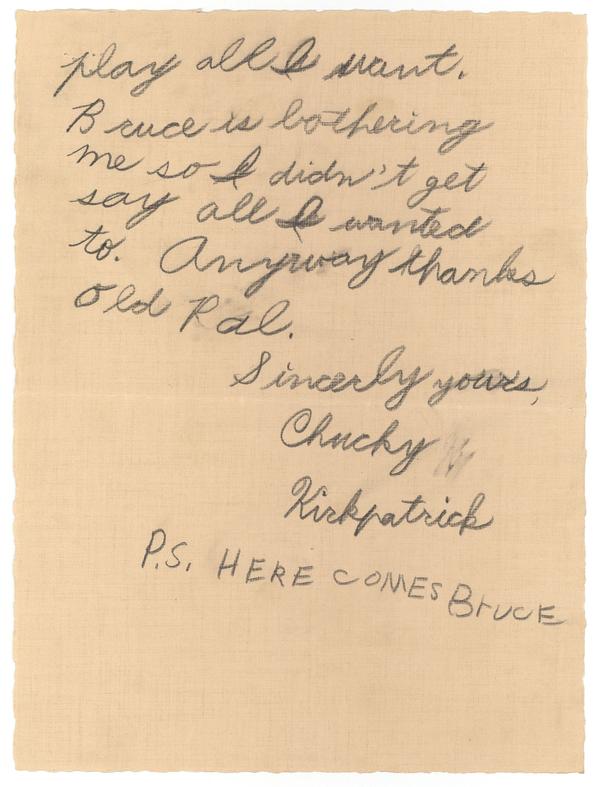 play all I want.
Bruce is bothering
me so I didn't get
say all I wanted
to. Anyway thanks
Old Pal.
Sincerly yours,
Chucky
Kirkpatrick
P.S. HERE COMES BrUCE